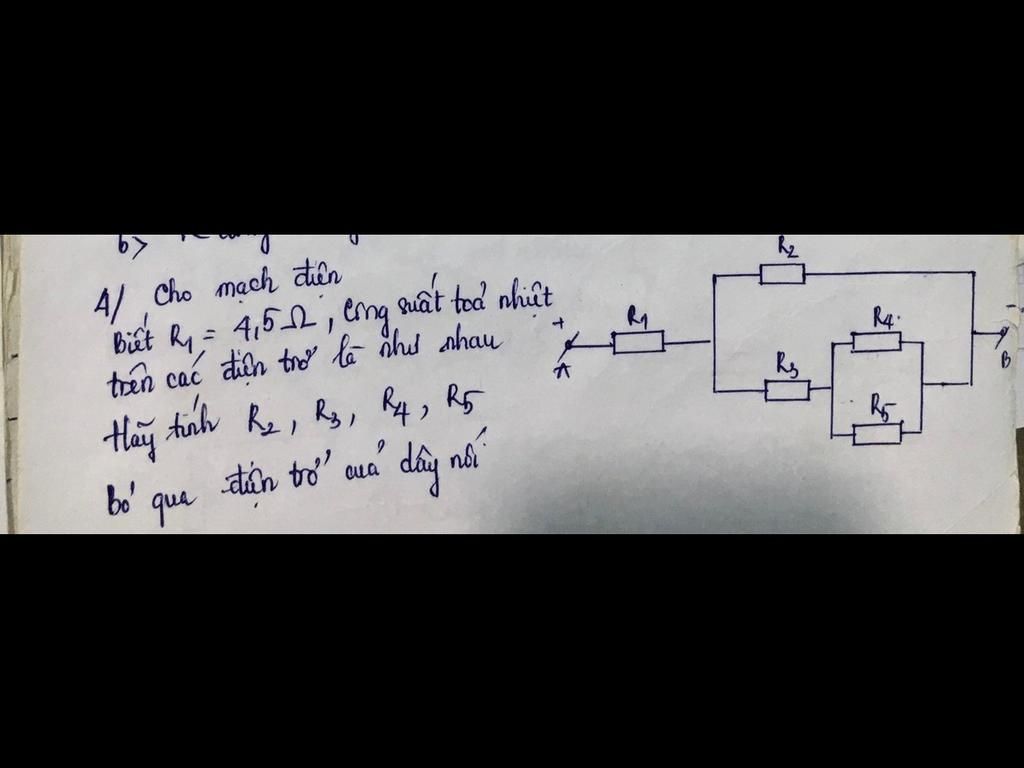 b>
4/ Cho mạch điện
Biết R1 = 4,5Ω, công suất toả nhiệt
trên các điện trở là như nhau
Hãy tính R2, R3, R4, R5
bỏ qua điện trở của dây nối
R2
+
R1
A
R3
R4
R5
-
B